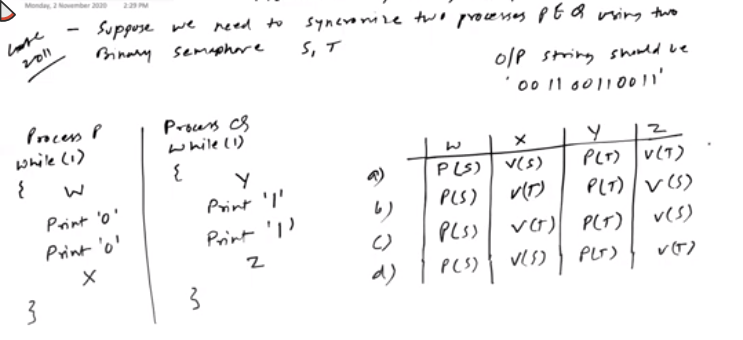 Monday, 2 November 2020 2:29 PM
- Suppose we need to syncronize two processes P & Q using two
2011 Binary semaphore S, T
O/P string should be
'001100110011'
Process P
while(1)
{ W
Print '0'
Print '0'
X
}
Process Q
while(1)
{ Y
Print '1'
Print '1'
Z
}
W X Y Z
a) P(S) V(S) P(T) V(T)
b) P(S) V(T) P(T) V(S)
c) P(S) V(T) P(T) V(S)
d) P(S) V(S) P(T) V(T)